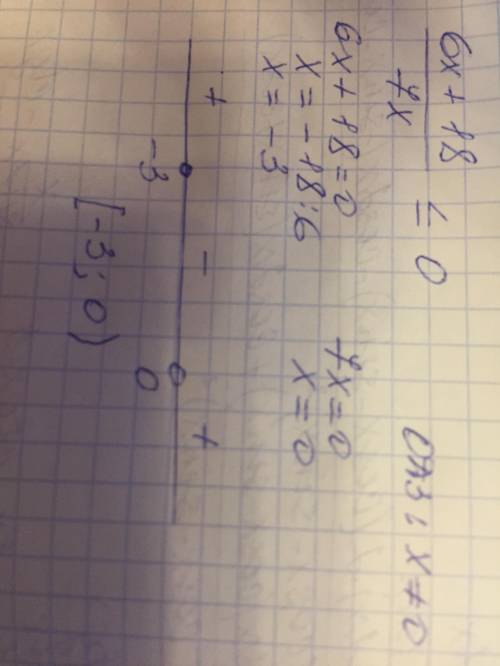 6x + 18
4x
≤ 0
ОДЗ: x ≠ 0
6x + 18 = 0
4x = 0
x = -18 : 6
x = 0
x = -3
+ - +
-3 0
[-3; 0)